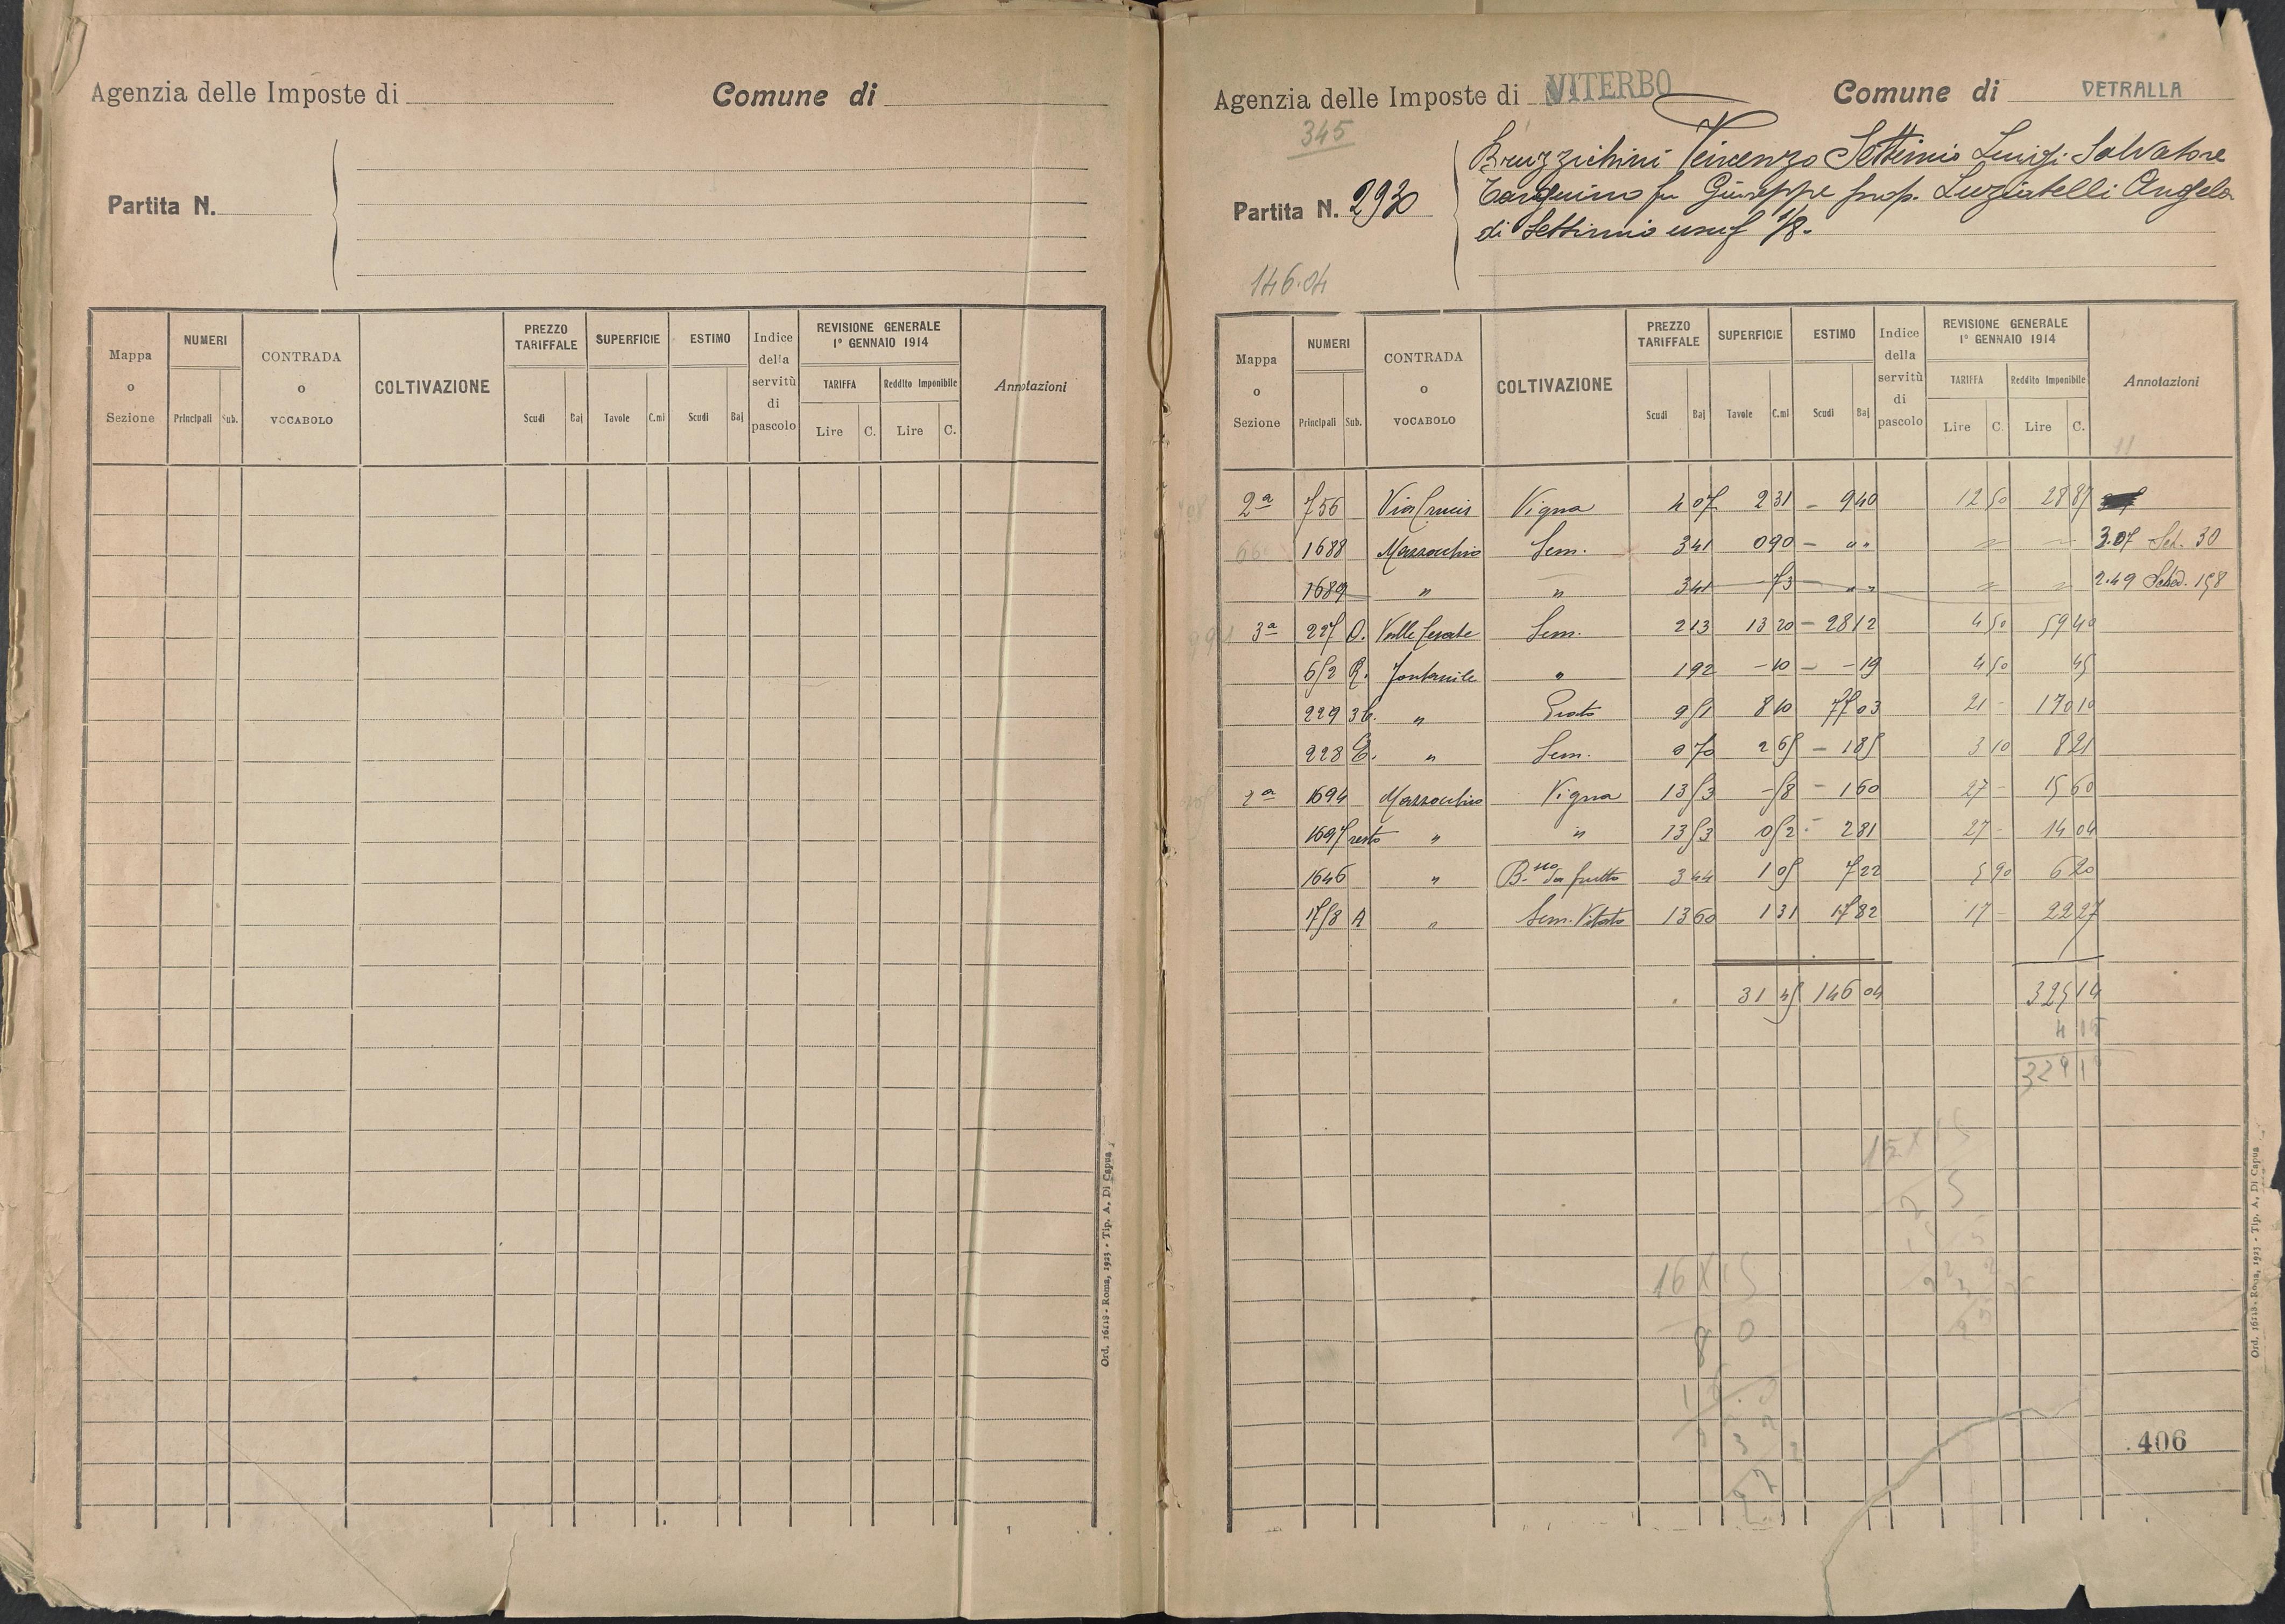 Agenzia delle Imposte di
Comune di
Partita N.
Mappa o Sezione
NUMERI
Principali Sub.
CONTRADA o VOCABOLO
COLTIVAZIONE
PREZZO TARIFFALE
Scudi Baj
SUPERFICIE
Tavole C.mi
ESTIMO
Scudi Baj
Indice della servitù di pascolo
REVISIONE GENERALE 1° GENNAIO 1914
TARIFFA
Lire C.
Reddito Imponibile
Lire C.
Annotazioni
Ord. 16118 - Roma, 1923 - Tip. A. Di Capua
Agenzia delle Imposte di VITERBO
Comune di VETRALLA
345
Partita N. 2930
Bruzzichini Vincenzo Settimio Luigi Salvatore
Tarquinio fu Giuseppe prop. Luziatelli Angela
di Settimio usuf 1/8.
146.04
Mappa o Sezione
NUMERI
Principali Sub.
CONTRADA o VOCABOLO
COLTIVAZIONE
PREZZO TARIFFALE
Scudi Baj
SUPERFICIE
Tavole C.mi
ESTIMO
Scudi Baj
Indice della servitù di pascolo
REVISIONE GENERALE 1° GENNAIO 1914
TARIFFA
Lire C.
Reddito Imponibile
Lire C.
Annotazioni
11
2ª 756 Via Crucis Vigna 4 07 2 31 - 9 40 12 50 28 87
1688 Mazzocchio Sem. 3 41 0 90 - " " 3.07 Sch. 30
1689 " " 3 41 - 73 - " " 2.49 Sched. 158
3ª 227 D. Valle Cesate Sem. 2 13 13 20 - 28 12 4 50 59 40
652 R. Fontanile " 1 92 - 10 - - 19 4 50 45
229 3 b. " Prato 9 51 8 10 77 03 21 - 170 10
228 C. " Sem. 0 70 2 65 - 1 85 3 10 8 21
2ª 1694 Mazzocchio Vigna 13 53 - 58 - 1 60 27 - 15 60
1697 resto " " 13 53 0 52 - 2 81 27 - 14 04
1646 " B.no da frutto 3 44 1 05 7 22 5 90 6 20
1758 A " Sem. Vitato 13 60 1 31 17 82 17 - 22 27
31 45 146 04 325 14
4 05
329 19
15 X 15
16 X 15
8 0
406
Ord. 16118 - Roma, 1923 - Tip. A. Di Capua